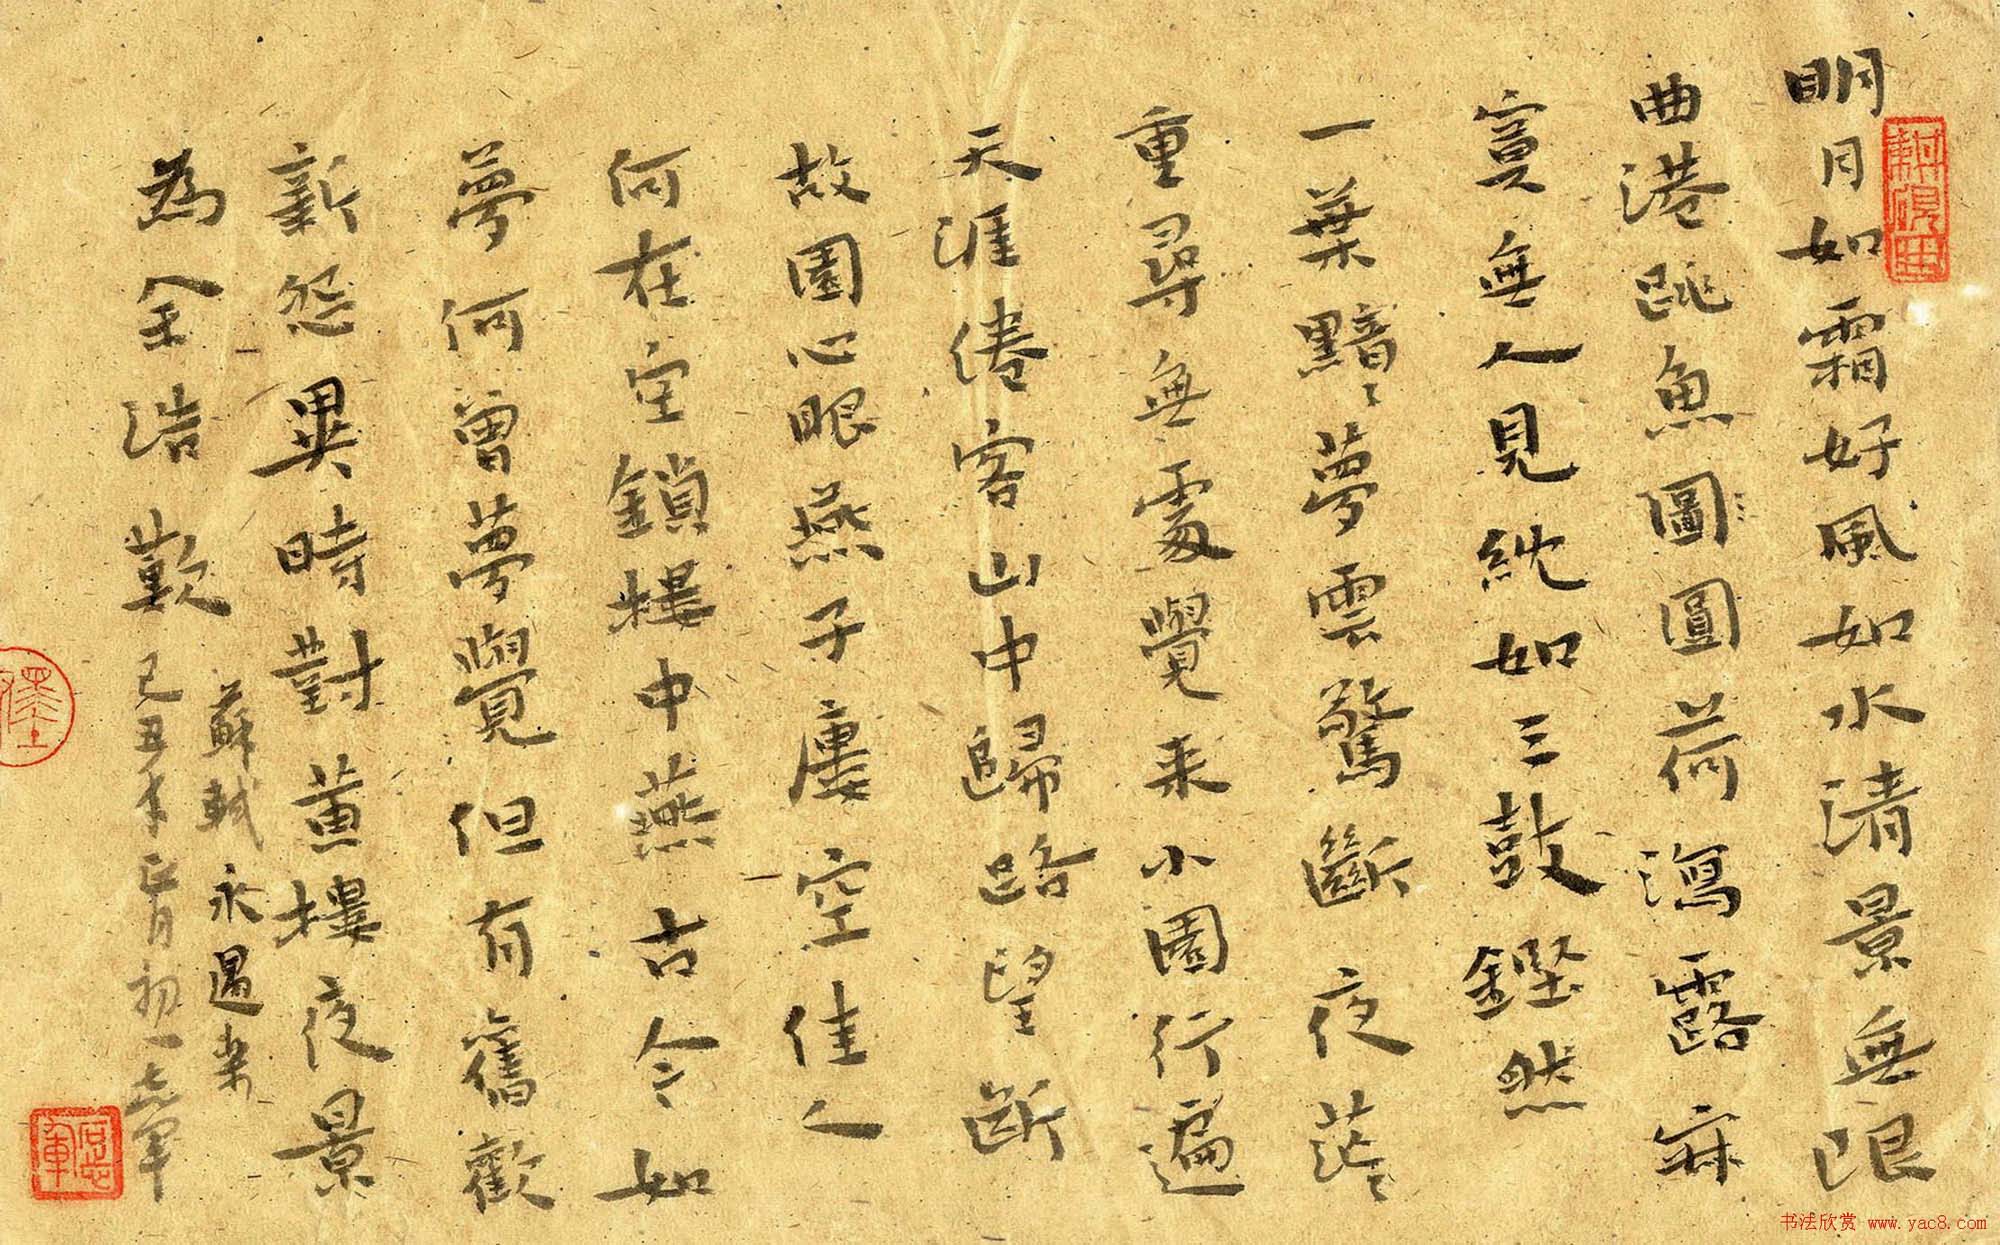 明月如霜好風如水清景無限
曲港跳魚圖圓荷瀉露寂
寞無人見紞如三鼓鏗然
一葉黯〻夢雲驚斷夜茫〻
重尋無處覺来小園行遍
天涯倦客山中歸路望斷
故園心眼燕子樓空佳人
何在空鎖樓中燕古今如
夢何曾夢覺但有舊歡
新怨異時對黃樓夜景
為余浩歎
蘇軾永遇樂
己丑年正月初一志軍
书法欣赏 www.yac8.com